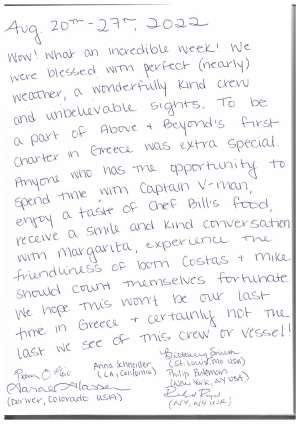 Aug. 20th - 27th, 2022
Wow! What an incredible week! We
were blessed with perfect (nearly)
weather, a wonderfully kind crew
and unbelievable sights. To be
a part of Above & Beyond's first
charter in Greece was extra special.
Anyone who has the opportunity to
spend time with Captain V-man,
enjoy a taste of Chef Bill's food,
receive a smile and kind conversation
with Margarita, experience the
friendliness of both Costas & Mike
should count themselves fortunate
We hope this won't be our last
time in Greece & certainly not the
last we see of this crew or vessel!
Anna Schneider
(LA, California)
Brittany
(St. Louis, MO USA)
Philip Bateman
(New York, NY USA)
(Denver, Colorado USA)
(NY, NY USA)